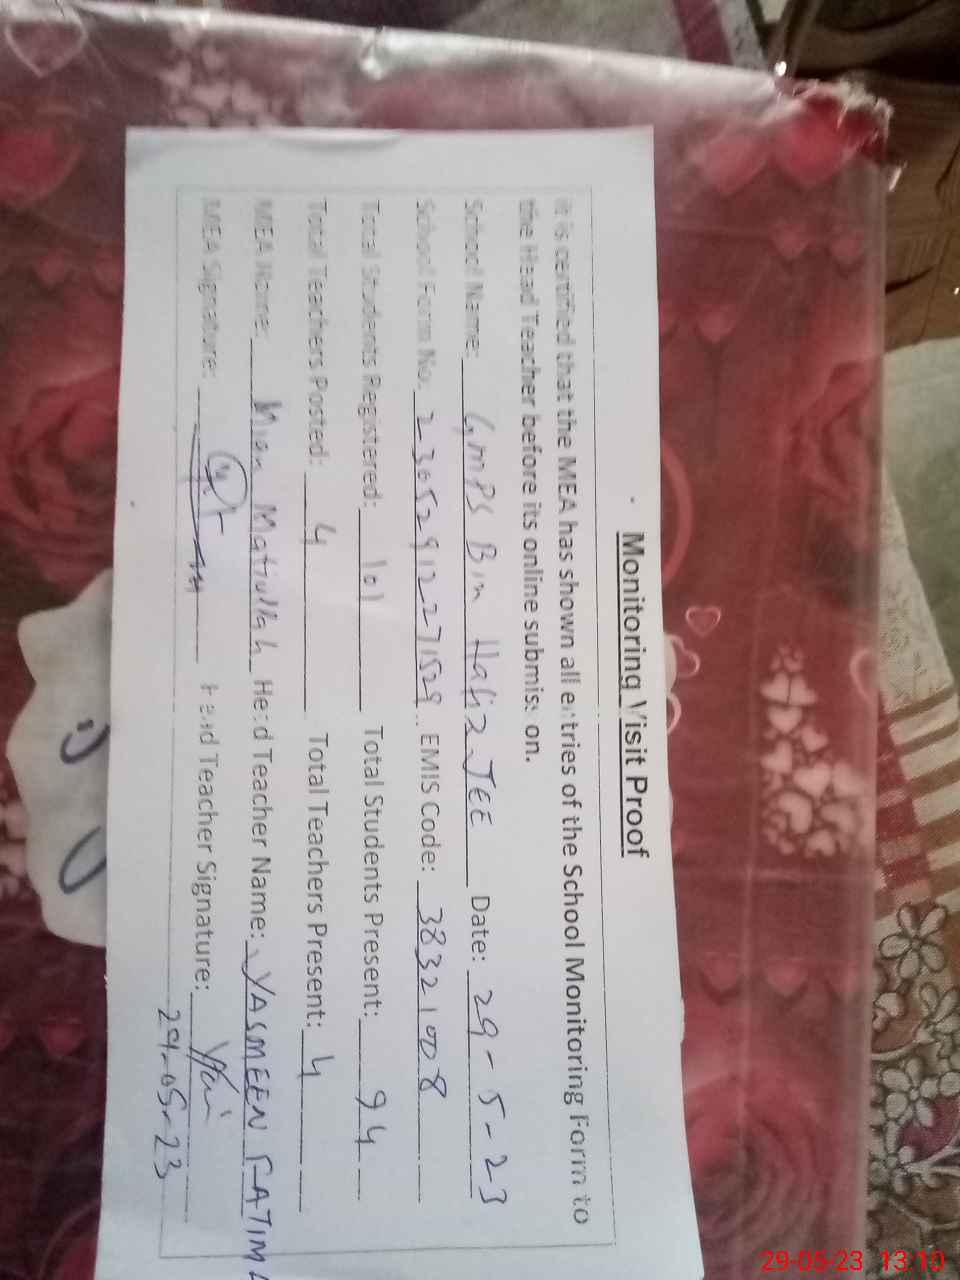 Monitoring Visit Proof
It is certified that the MEA has shown all entries of the School Monitoring Form to
the Head Teacher before its online submission.
School Name: GMPS Bin Hafiz JEE Date: 29-5-23
School Form No. 230529122271529 EMIS Code: 38321008
Total Students Registered: 101 Total Students Present: 94
Total Teachers Posted: 4 Total Teachers Present: 4
MEA Name: Mian Matiullah Head Teacher Name: YASMEEN FATIMA
MEA Signature: Head Teacher Signature:
29-05-23
29-05-23 13:10